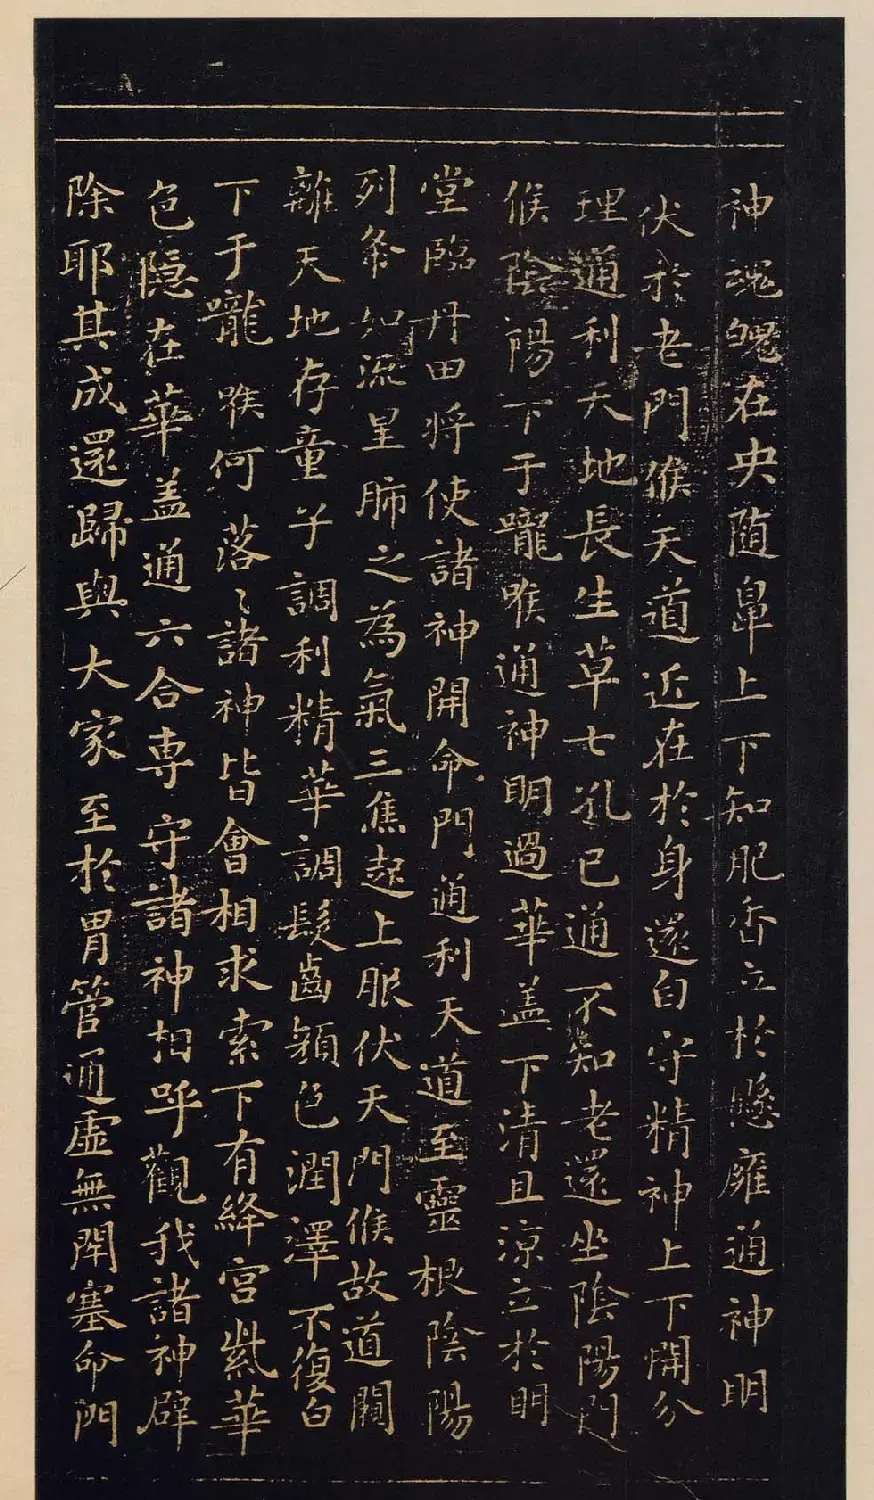 神魂魄在央随鼻上下知肥香立於懸雍通神明
伏於老門候天道近在於身還自守精神上下開分
理通利天地長生草七孔已通不知老還坐陰陽門
候陰陽下于嚨喉通神明過華盖下清且涼立於明
堂臨丹田将使諸神開命門通利天道至靈根陰陽
列布如流星肺之為氣三焦起上服伏天門候故道闚
離天地存童子調利精華調髮齒顏色潤澤不復白
下于嚨喉何落〻諸神皆會相求索下有絳宮紫華
色隱在華盖通六合専守諸神相呼觀我諸神辟
除耶其成還歸與大家至於胃管通虛無閇塞命門